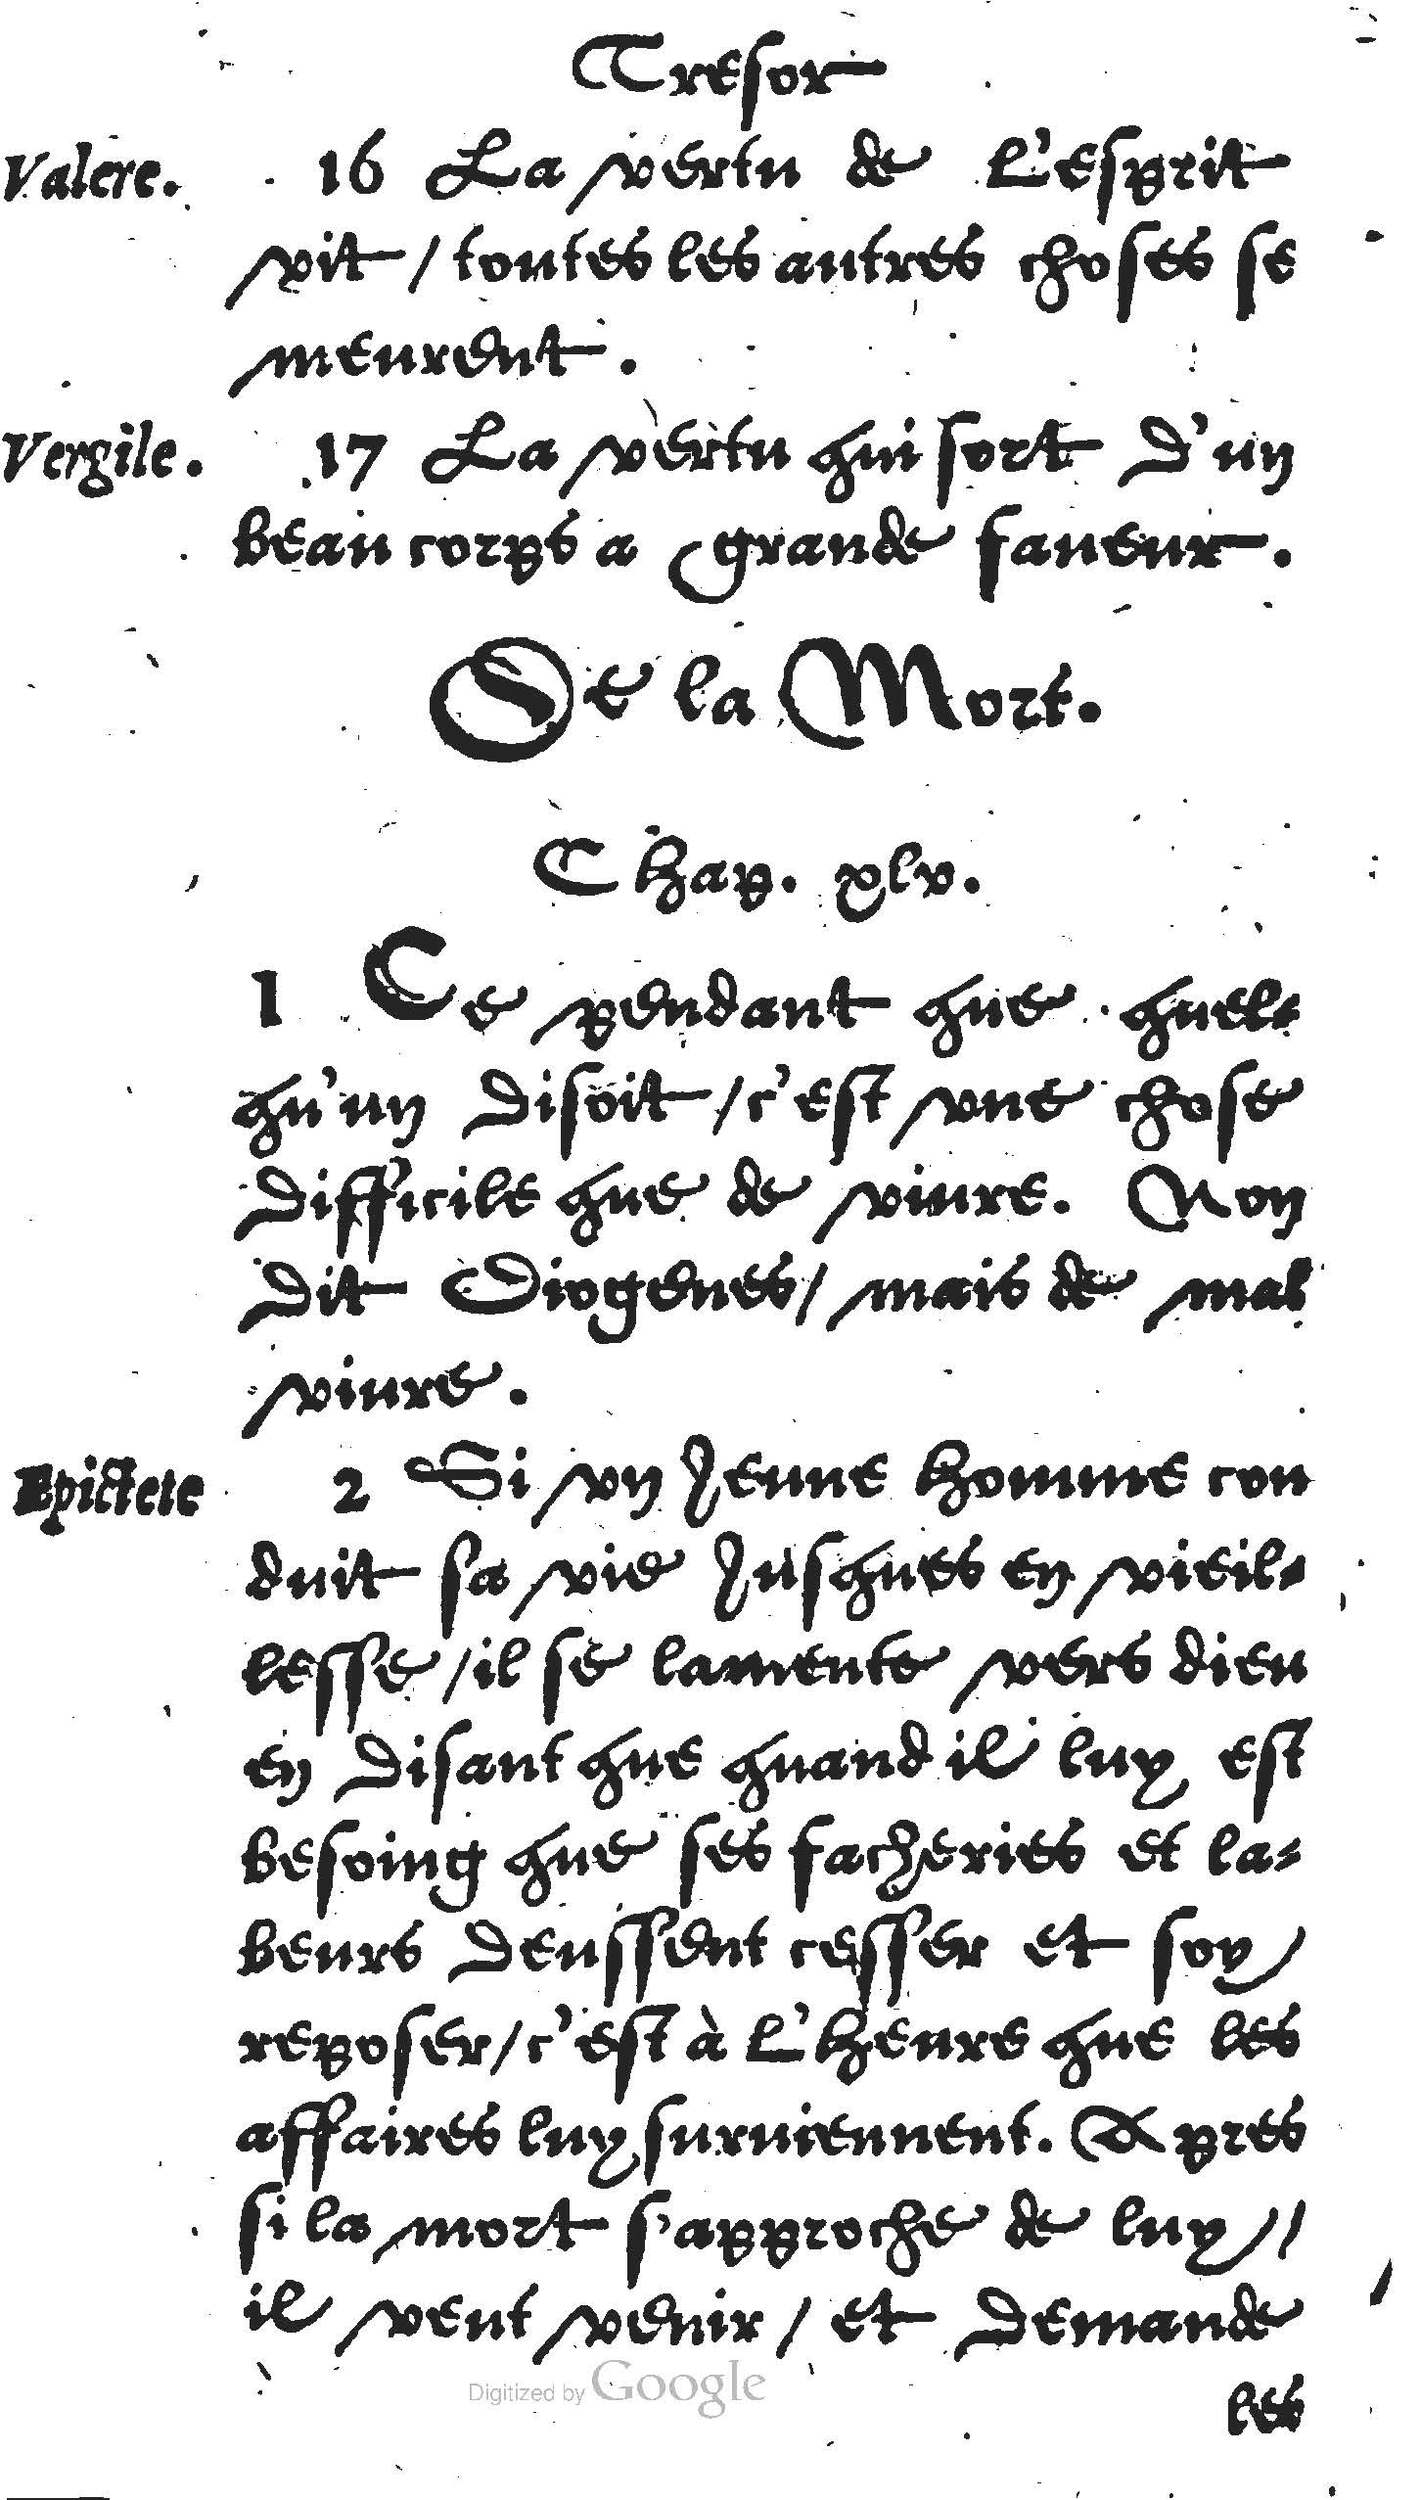 Tresor
Valere. 16 La vertu de L'esprit
vit / toutes les autres choses se
meurent.
Vergile. 17 La vertu qui sort d'un
beau corps a grande faueur.
De la Mort.
Chap. xlv.
1 Ce pendant que quel-
qu'un disoit / c'est vne chose
difficile que de viure. Non
dit Diogenes / mais de mal
viure.
Epictete 2 Si vn Jeune homme con
duit sa vie Jusques en vieil-
lesse / il se lamente vers dieu
en disant que quand il luy est
besoing que ses facheries et la-
beurs deussent cesser et soy /
reposer / c'est à L'heure que les
affaires luy suruiennent. Apres
si la mort s'approche de luy //
il veut venir / et demande
Digitized by Google
les